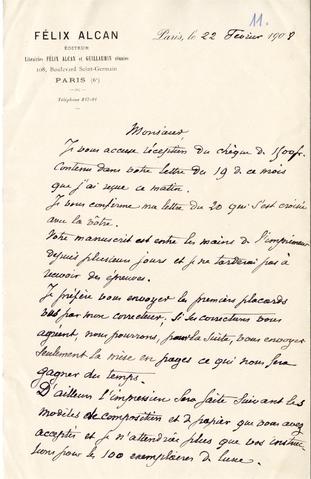 11.
FÉLIX ALCAN
ÉDITEUR
Librairies FÉLIX ALCAN et GUILLAUMIN réunies
108, Boulevard Saint-Germain
PARIS (6e)
Téléphone 812-01
Paris, le 22 Février 1908
Monsieur
Je vous accuse réception du chèque de 1500f.
Contenu dans votre lettre du 19 de ce mois
que j'ai reçue ce matin.
Je vous confirme ma lettre du 20 qui s'est croisée
avec la vôtre.
Votre manuscrit est entre les mains de l'imprimeur
depuis plusieurs jours et je ne tarderai pas à
recevoir des épreuves.
Je préfère vous envoyer les premiers placards
vus par mon correcteur; si ses corrections vous
agréent, nous pourrons, pour la suite, vous envoyer
seulement la mise en pages ce qui nous fera
gagner du temps.
D'ailleurs l'impression sera faite suivant les
modèles de composition et de papier que vous avez
acceptés et je n'attendrai plus que vos instruc-
tions pour les 100 exemplaires de luxe.